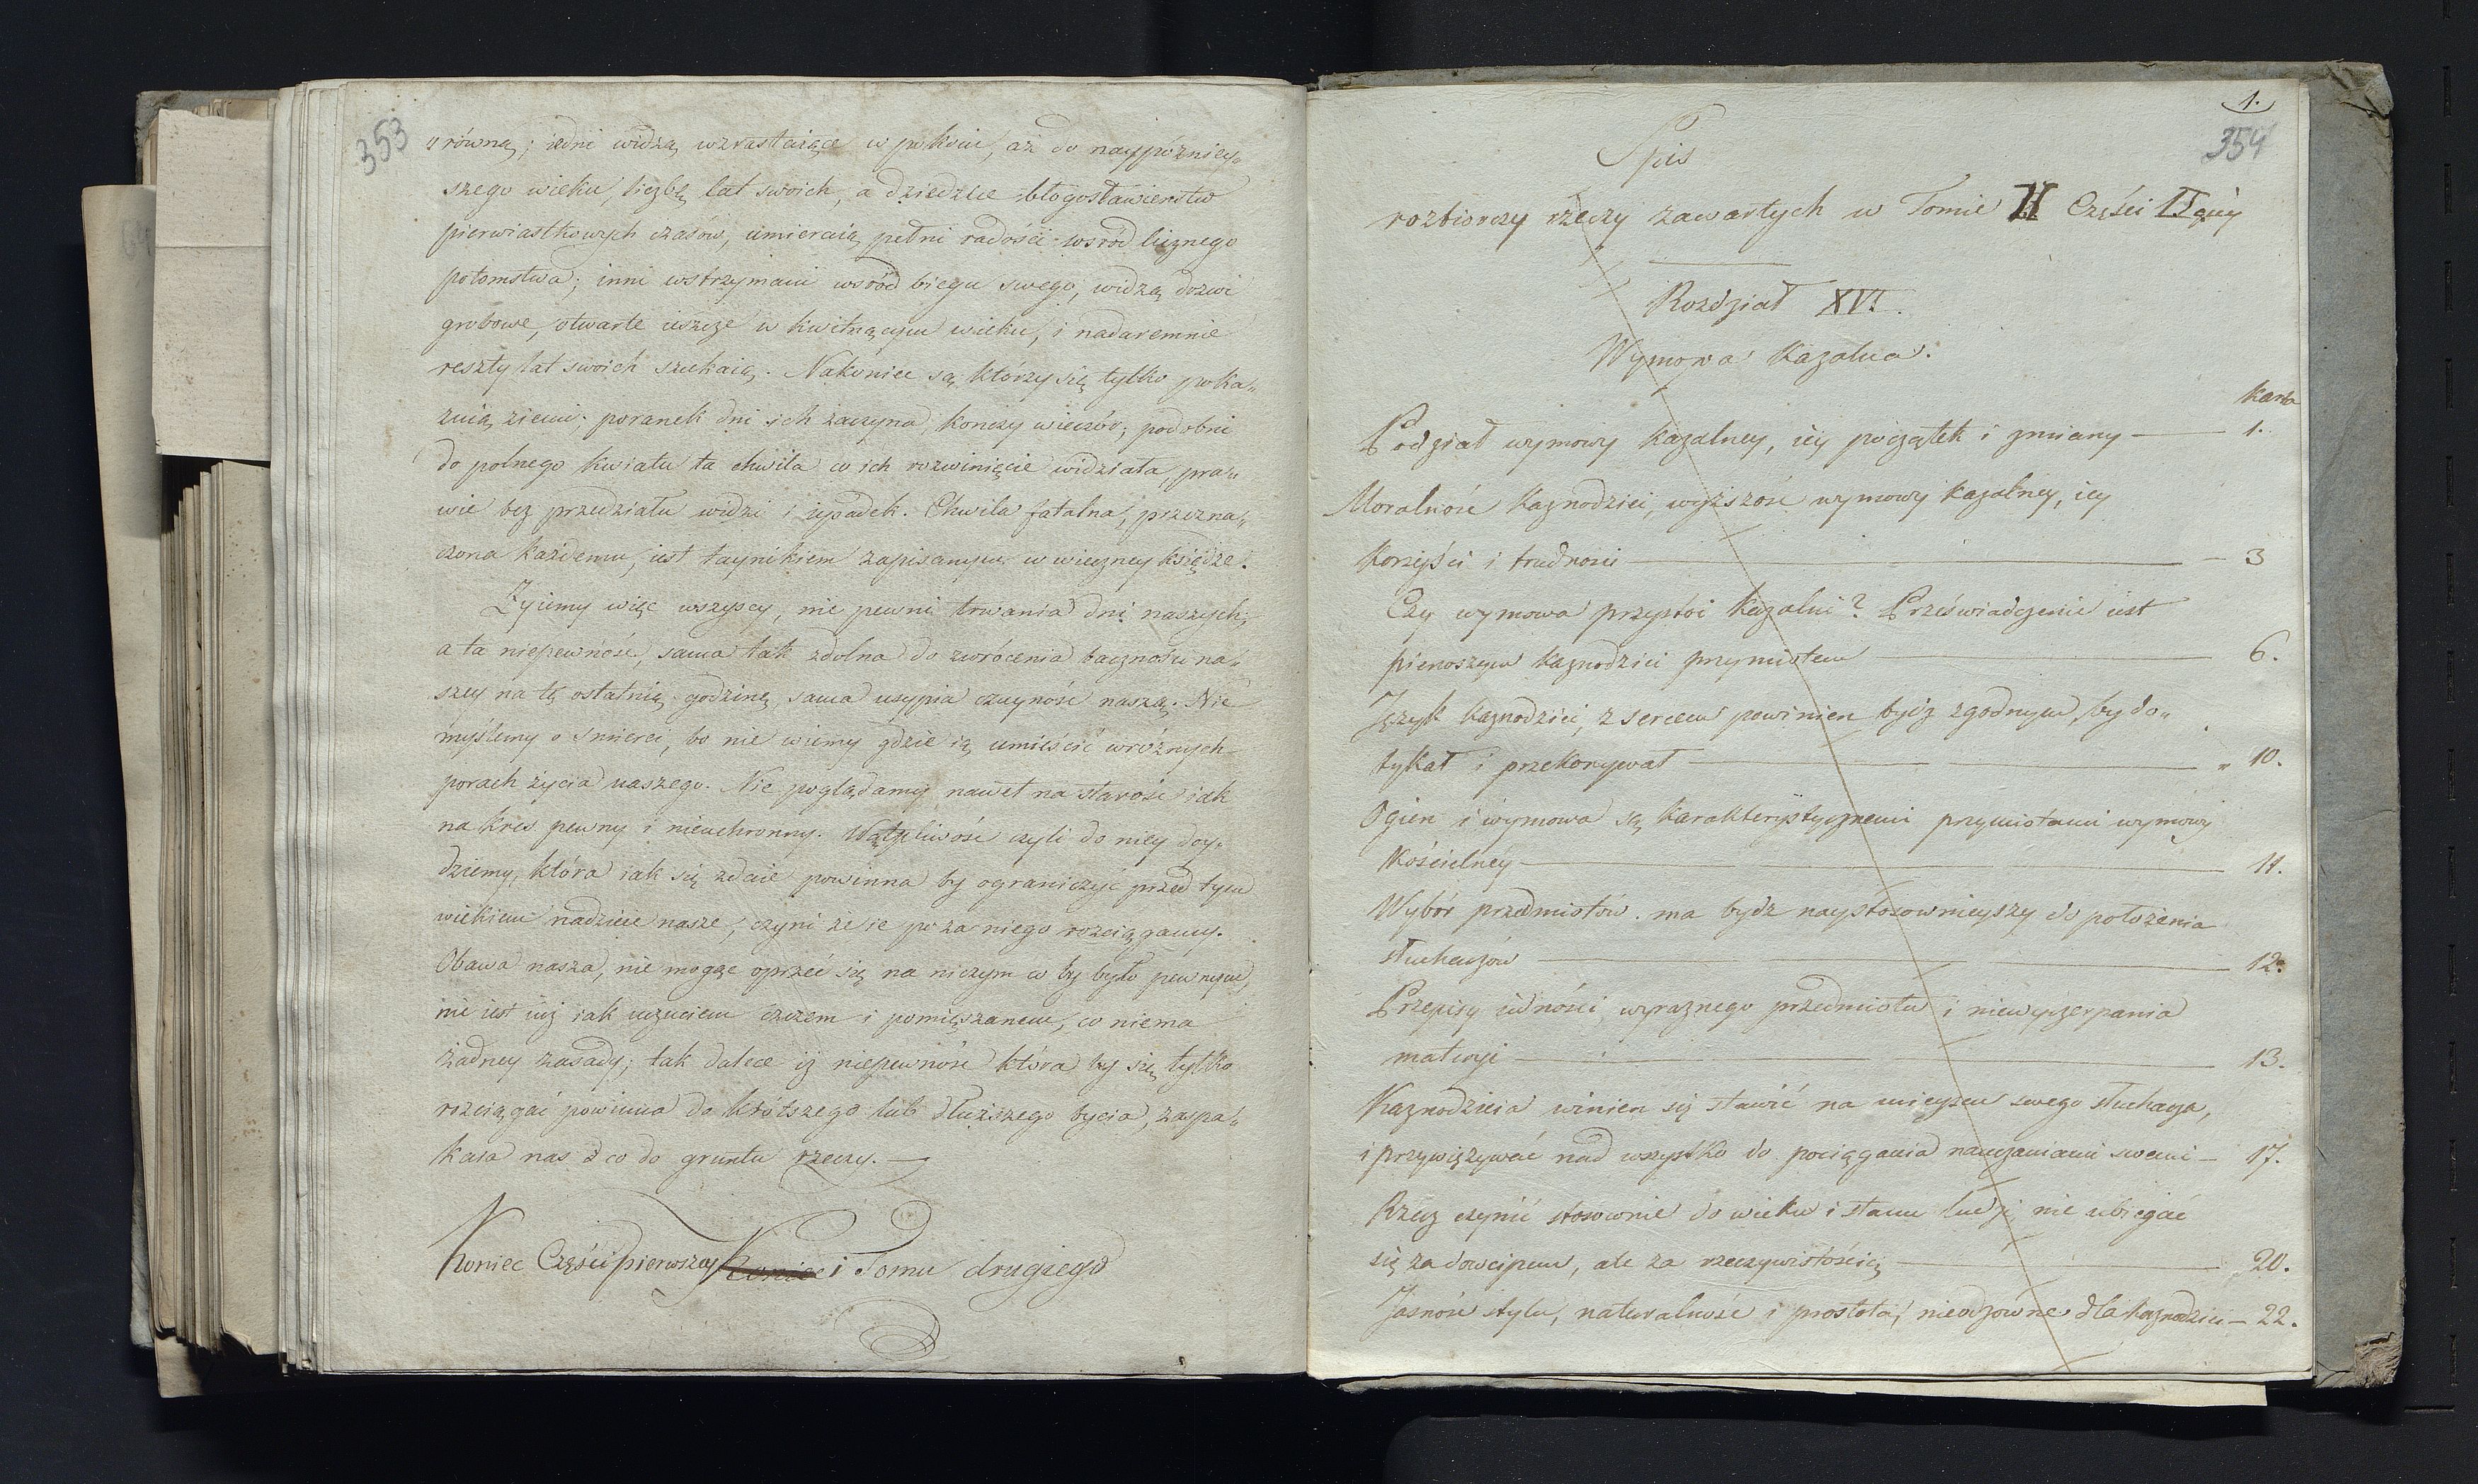 353
„równą; iedni widzą wzrastaiące w pokoiu, aż do naypóźniey„
szego wieku, liczbę lat swoich, a dziedzice błogosławieństw
pierwiastkowych czasów, umieraią pełni radości wsród licznego
potomstwa; inni wstrzymani wsród biegu swego, widzą drzwi
grobowe, otwarte ieszcze w kwitnącym wieku, i nadaremnie
reszty lat swoich szukaią. Nakoniec są którzy się tylko poka„
zuią ziemi; poranek dni ich zaczyna, konczy wieczór; podobni
do polnego kwiatu ta chwila co ich rozwinięcie widziała, pra„
wie bez przedziału widzi i upadek. Chwila fatalna, przezna„
czona każdemu, iest taynikiem zapisanym w wieczney księdze.
Żyiemy więc wszyscy, nie pewni trwania dni naszych,
a ta niepewność, sama tak zdolna do zwrócenia baczności na„
szey na tę ostatnią godzinę, sama usypia czuyność naszą. Nie
myślemy o śmierci, bo nie wiemy gdzie ią umieścić wróżnych
porach życia naszego. Nie poglądamy nawet na starość iak
na kres pewny i nieuchronny. Wątpliwość czyli do niey doy„
dziemy, która iak się zdaie powinna by ograniczyć przed tym
wiekiem nadzieie nasze, czyni że ie po za niego rozciągamy.
Obawa nasza, nie mogąc oprzeć się na niczym co by było pewnym,
nie iest iuż iak uczuciem czczem i pomięszanem, co niema
żadney zasady; tak dalece iż niepewność która by się tylko
rozciągać powinna do krótszego lub dłuższego bycia, zaspa„
kaia nas i co do gruntu rzeczy.
Koniec Części pierwszey Koniec i Tomu drugiego
1.
354
Spis
rozbiorczy rzeczy zawartych w Tomie II Części II giey
Rozdział XVI.
Wymowa Kazalna.
karta
Podział wymowy kazalney, iey początek i zmiany — 1.
Moralność Kaznodziei, wyższość wymowy kazalney, iey
korzyści i trudności — 3
Czy wymowa przystoi kazalni? Przeświadczenie iest
pierwszym kaznodziei przymiotem — 6.
Język kaznodziei, z sercem powinien bydz zgodnym, by do„
tykał i przekonywał — „ 10.
Ogien i wymowa są karakterystycznemi przymiotami wymowy
Kościelney — 11.
Wybór przedmiotów ma bydz naystosownieyszy do położenia
słuchaczów — 12.
Przepisy iedności, wyraznego przedmiotu i niewyczerpania
materyi — 13.
Kaznodzieia winien się stawić na mieyscu swego słuchacza,
i przywiązywać nad wszystko do pociągania nauczaniami swemi — 17.
Rzecz czynić stosownie do wieku i stanu ludzi, nie ubiegać
się za dowcipem, ale za rzeczywistością — 20.
Jasność stylu, naturalność i prostota, nieodzowne dla kaznodziei — 22.